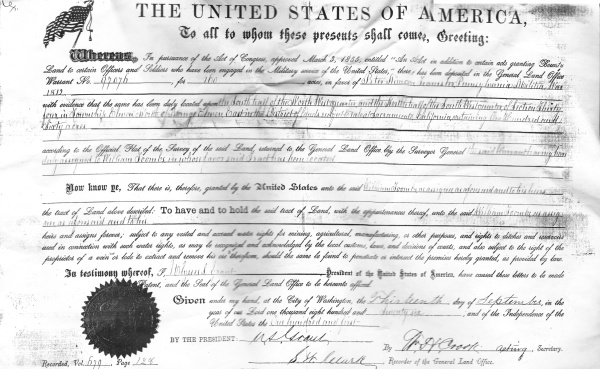 THE UNITED STATES OF AMERICA,
To all to whom these presents shall come, Greeting:
Whereas, In pursuance of the Act of Congress, approved March 3, 1855, entitled "An Act in addition to certain acts granting Bounty
Land to certain Officers and Soldiers who have been engaged in the Military service of the United States," there has been deposited in the General Land Office
Warrant No. for 160 acres, in favor of War
1812
with evidence that the same has been duly located upon the South half of the North West quarter and the North half of the South West quarter of Section Thirty
four in Township in the District of Lands California, containing One Hundred and
Sixty acres
according to the Official Plat of the Survey of the said Land, returned to the General Land Office by the Surveyor General
assigned to William Toombs in whose favor said Tract has been located
Now know ye, That there is, therefore, granted by the United States unto the said William Toombs as assignee as aforesaid and to his heirs
the tract of Land above described: To have and to hold the said tract of Land, with the appurtenances thereof, unto the said William Toombs as assig
nee as aforesaid and to his
heirs and assigns forever; subject to any vested and accrued water rights for mining, agricultural, manufacturing, or other purposes, and rights to ditches and reservoirs
used in connection with such water rights, as may be recognized and acknowledged by the local customs, laws, and decisions of courts, and also subject to the right of the
proprietor of a vein or lode to extract and remove his ore therefrom, should the same be found to penetrate or intersect the premises hereby granted, as provided by law.
In testimony whereof, I, Grant President of the United States of America, have caused these letters to be made
Patent, and the Seal of the General Land Office to be hereunto affixed.
Given under my hand, at the City of Washington, the Thirteenth day of September, in the
year of our Lord one thousand eight hundred and seventy six, and of the Independence of the
United States the one hundred and first
BY THE PRESIDENT: U. S. Grant
By Acting Secretary.
Recorder of the General Land Office.
Recorded, Vol. 679 Page 128